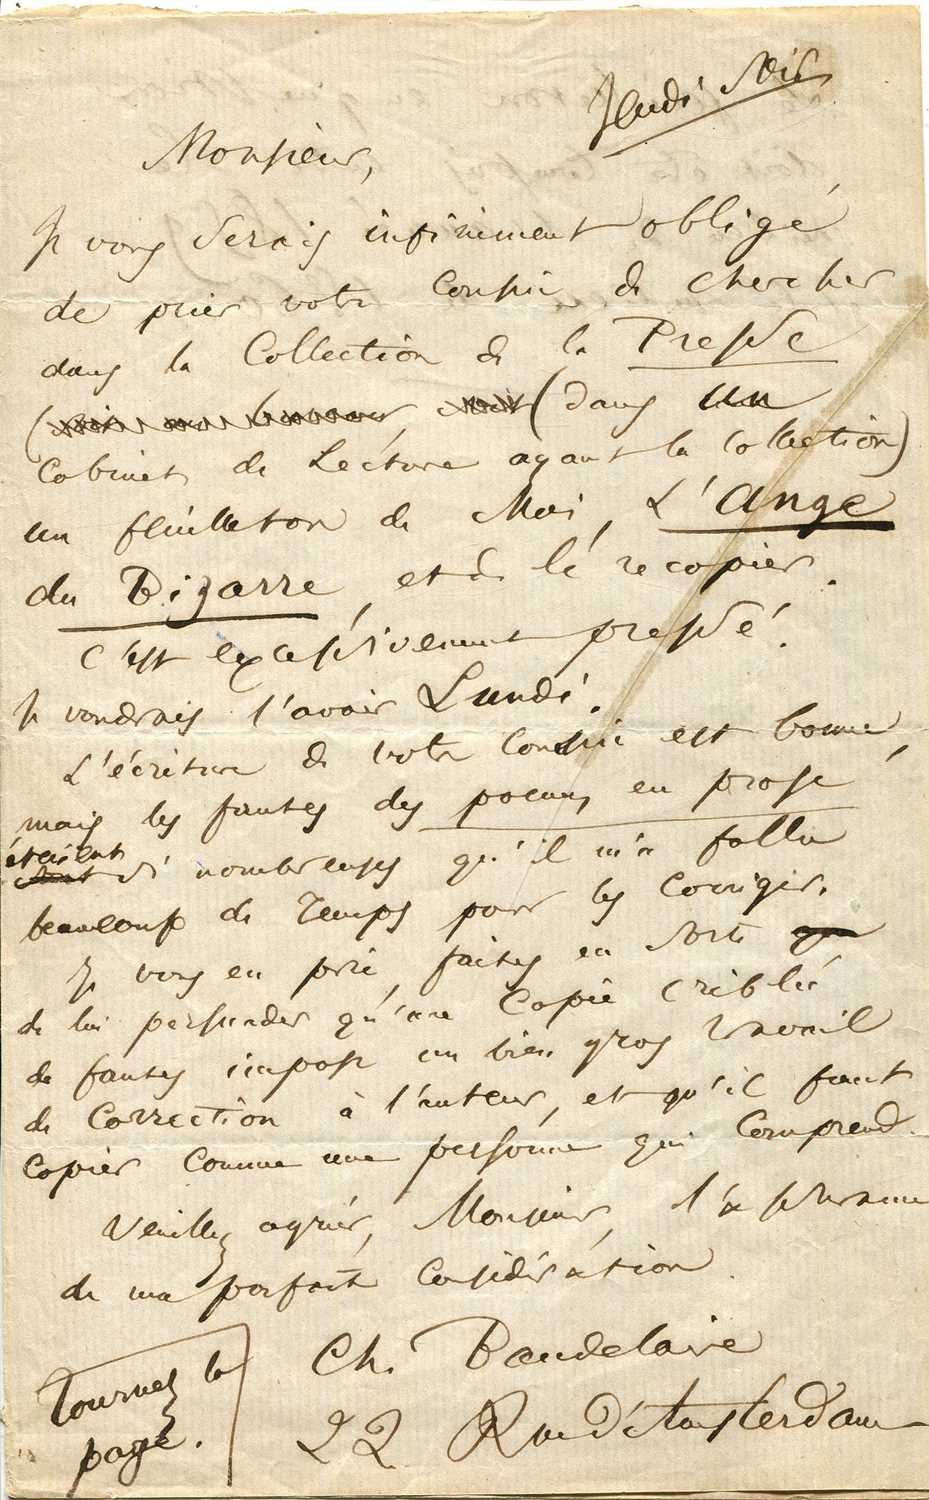 Jeudi Soir
Monsieur,
Je vous serais infiniment obligé
de prier votre Cousin de chercher
dans la Collection de la Presse
(dans un
Cabinet de Lecture ayant la Collection)
un feuilleton de Moi, L'Ange
du Bizarre, et de le recopier.
C'est excessivement pressé.
Je voudrais l'avoir Lundi.
L'écriture de votre Cousin est bonne,
mais les fautes des poèmes en prose
étaient si nombreuses qu'il m'a fallu
beaucoup de Temps pour les Corriger.
Je vous en prie, faites en sorte
de lui persuader qu'une Copie criblée
de fautes impose un bien gros travail
de Correction à l'auteur, et qu'il faut
Copier Comme une personne qui Comprend.
Veuillez agréer, Monsieur, l'assurance
de ma parfaite Considération.
Ch. Baudelaire
22 Rue d'Amsterdam
Tournez la
page.